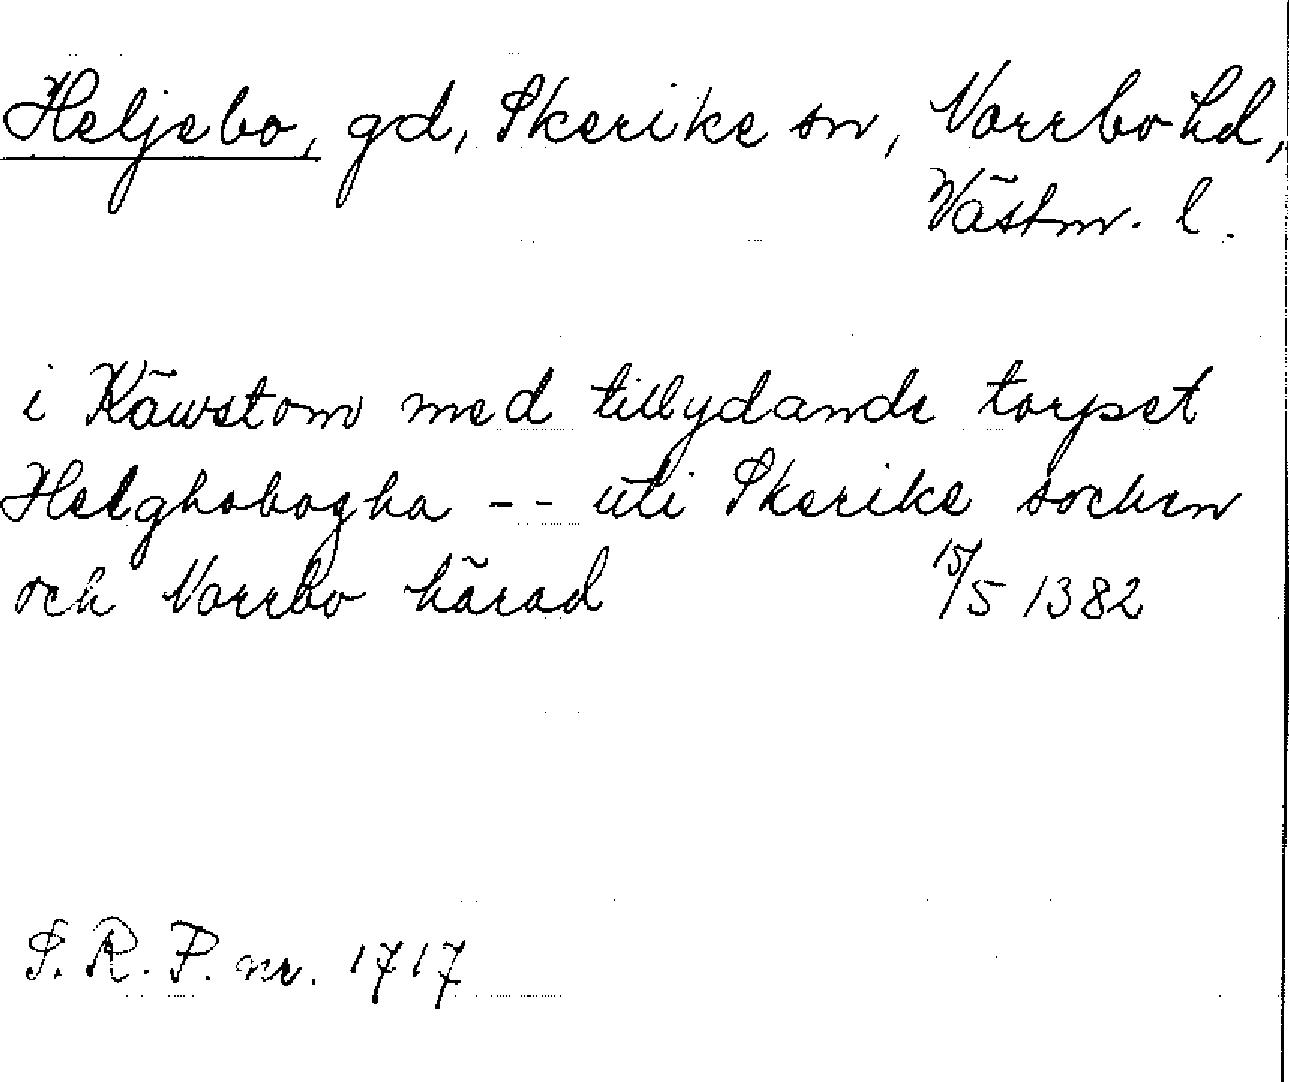 Heljebo, gd, Skerike sn, Norrbo hd,
Västm. l.
i Käwstom med tillydande torpet
Helghobogha -- uti Skerike socken
och Norrbo härad 15/5 1382
S. R. P. nr. 1717